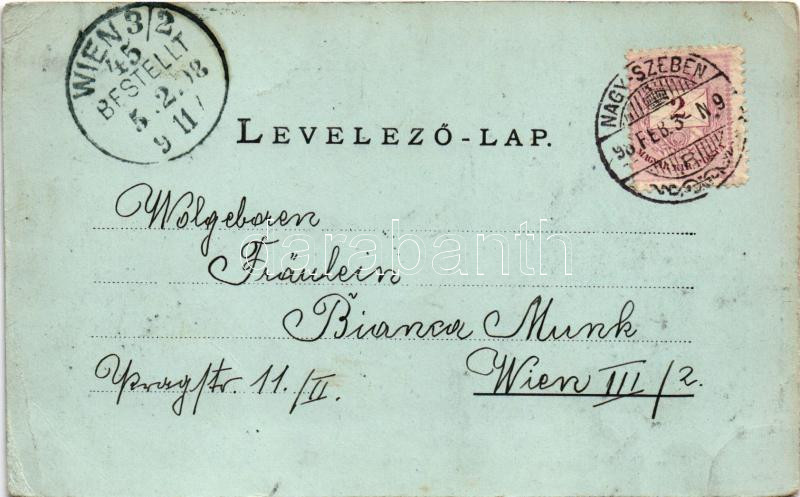 WIEN 3/2
45
BESTELLT
5.2.98
9 11 /
NAGY-SZEBEN
98 FEB. 3- N. 9
2
LEVELEZŐ-LAP.
Wolgeboren
Fräulein
Bianca Munk
Pragstr. 11./II.
Wien III/2.
darabanth